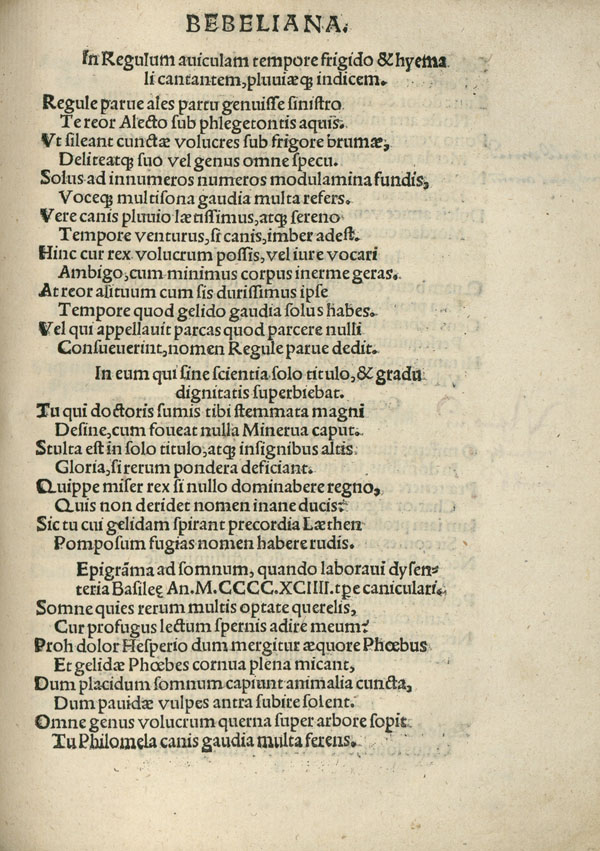 BEBELIANA.
In Regulum auiculam tempore frigido & hyema
li cantantem, pluuiæq; indicem.
Regule parue ales partu genuisse sinistro
Te reor Alecto sub phlegetontis aquis.
Vt sileant cunctæ volucres sub frigore brumæ,
Deliteatq; suo vel genus omne specu.
Solus ad innumeros numeros modulamina fundis,
Voceq; multisona gaudia multa refers.
Vere canis pluuio lætissimus, atq; sereno
Tempore venturus, si canis, imber adest.
Hinc cur rex volucrum possis, vel iure vocari
Ambigo, cum minimus corpus inerme geras.
At reor alituum cum sis durissimus ipse
Tempore quod gelido gaudia solus habes.
Vel qui appellauit parcas quod parcere nulli
Consueuerint, nomen Regule parue dedit.
In eum qui sine scientia solo titulo, & gradu
dignitatis superbiebat.
Tu qui doctoris sumis tibi stemmata magni
Desine, cum foueat nulla Minerua caput.
Stulta est in solo titulo, atq; insignibus altis
Gloria, si rerum pondera deficiant.
Quippe miser rex si nullo dominabere regno,
Quis non deridet nomen inane ducis?
Sic tu cui gelidam spirant precordia Læthen
Pomposum fugias nomen habere rudis.
Epigrāma ad somnum, quando laboraui dysen-
teria Basileę An. M.CCCC.XCIIII. tpe caniculari.
Somne quies rerum multis optate querelis,
Cur profugus lectum spernis adire meum?
Proh dolor Hesperio dum mergitur æquore Phœbus
Et gelidæ Phœbes cornua plena micant,
Dum placidum somnum capiunt animalia cuncta,
Dum pauidæ vulpes antra subire solent.
Omne genus volucrum querna super arbore sopit
Tu Philomela canis gaudia multa ferens.